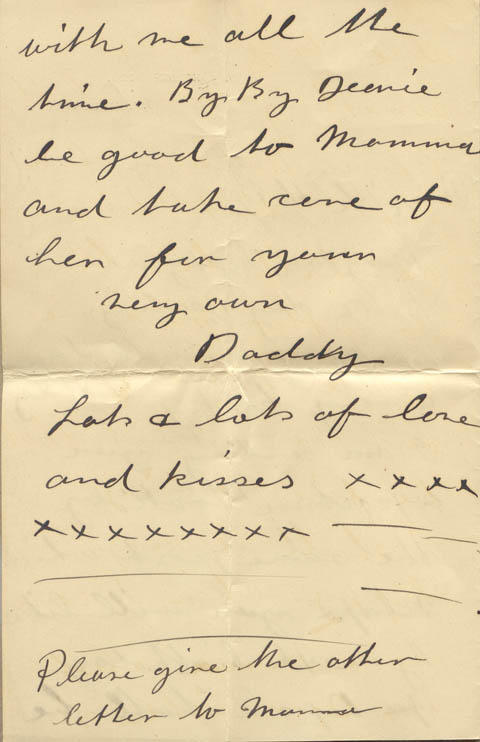 with me all the
time. By By Deanie
be good to Mamma
and take care of
her for your
very own
Daddy
Lots & lots of love
and kisses xxxx
xxxxxxxxx
Please give the other
letter to Mamma